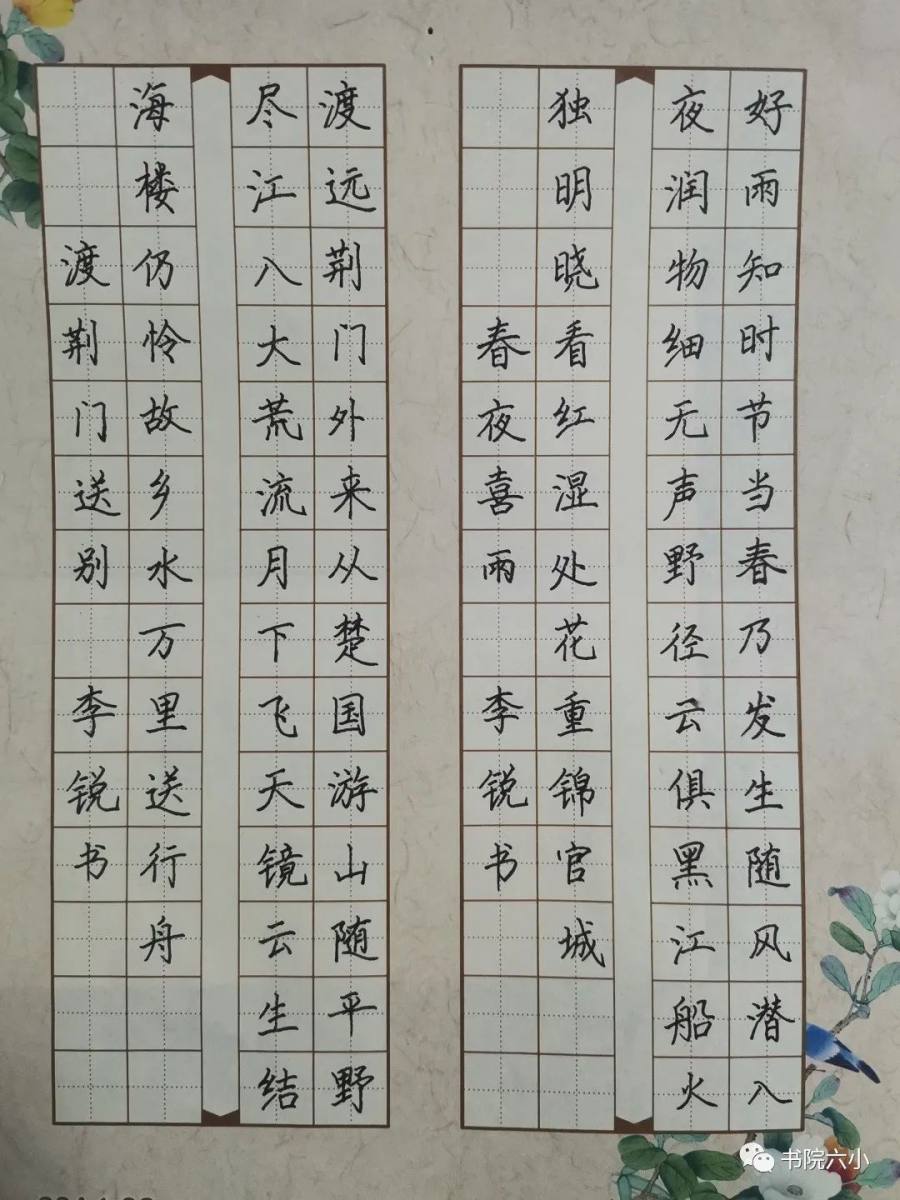 好雨知时节当春乃发生随风潜入
夜润物细无声野径云俱黑江船火
独明晓看红湿处花重锦官城
春夜喜雨 李锐书
渡远荆门外来从楚国游山随平野
尽江入大荒流月下飞天镜云生结
海楼仍怜故乡水万里送行舟
渡荆门送别 李锐书
书院六小